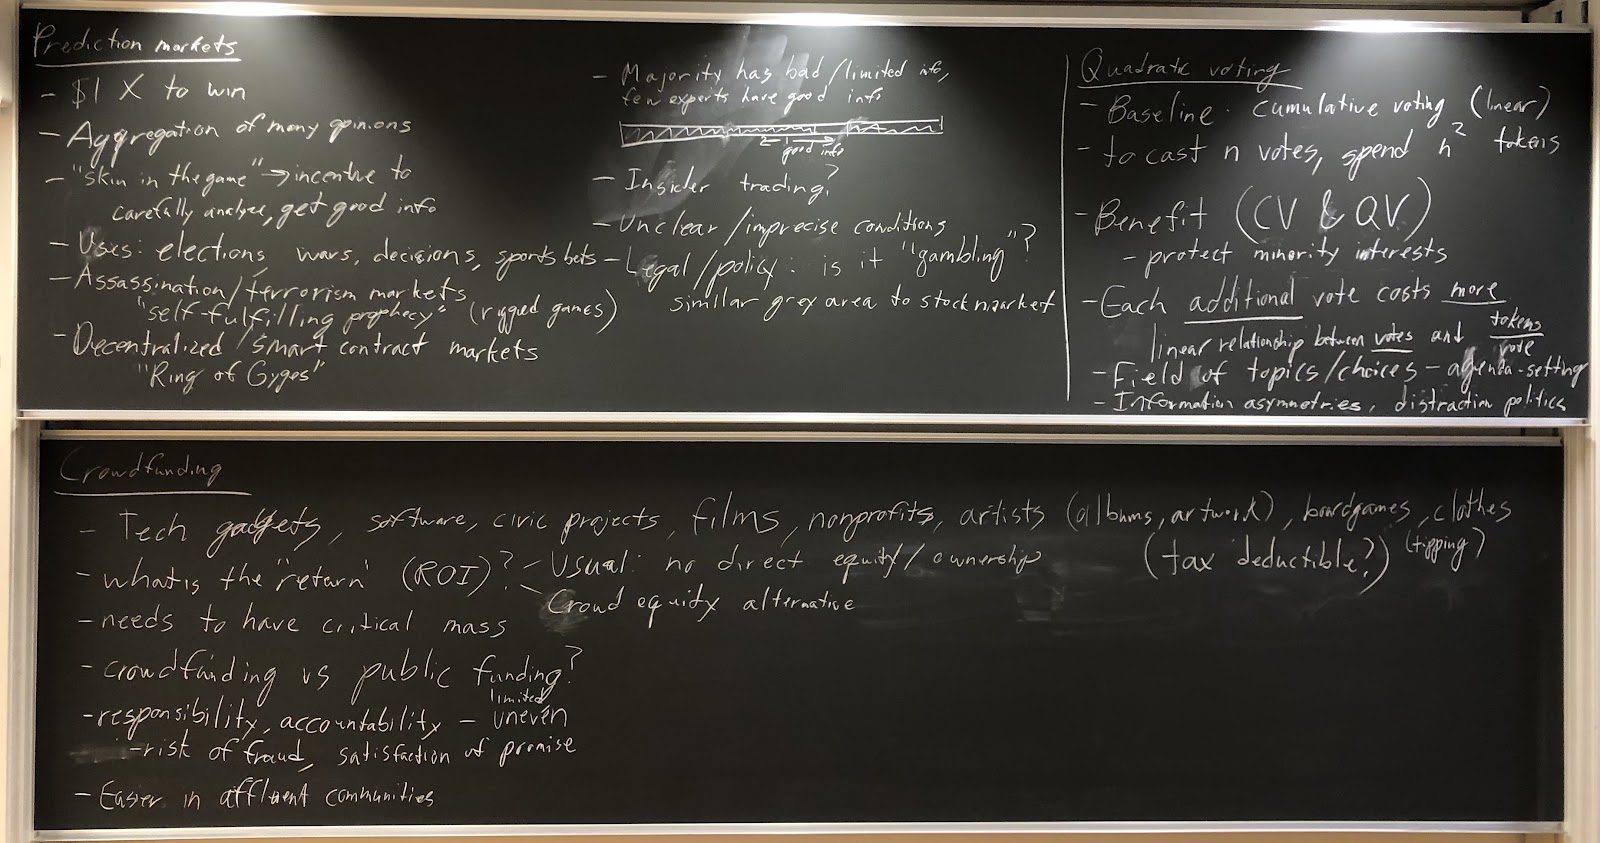 Prediction markets
- $1 X to win
- Aggregation of many opinions
- "skin in the game" → incentive to
carefully analyze, get good info
- Uses: elections, wars, decisions, sports bets
- Assassination/terrorism markets
"self-fulfilling prophecy" (rigged games)
- Decentralized/smart contract markets
"Ring of Gyges"
- Majority has bad/limited info,
few experts have good info
good info
- Insider trading?
- Unclear/imprecise conditions
- Legal/policy: is it "gambling"?
similar grey area to stock market
Quadratic voting
- Baseline: cumulative voting (linear)
- to cast n votes, spend n² tokens
- Benefit (CV & QV)
- protect minority interests
- Each additional vote costs more
linear relationship between votes and tokens/vote
- Field of topics/choices - agenda-setting
- Information asymmetries, distraction politics
Crowdfunding
- Tech gadgets, software, civic projects, films, nonprofits, artists (albums, artwork), boardgames, clothes
(tax deductible?) (tipping)
- what is the "return" (ROI)? - Usual: no direct equity/ownership
- Crowd equity alternative
- needs to have critical mass
- crowdfunding vs public funding?
- responsibility, accountability - limited uneven
- risk of fraud, satisfaction of promise
- Easier in affluent communities